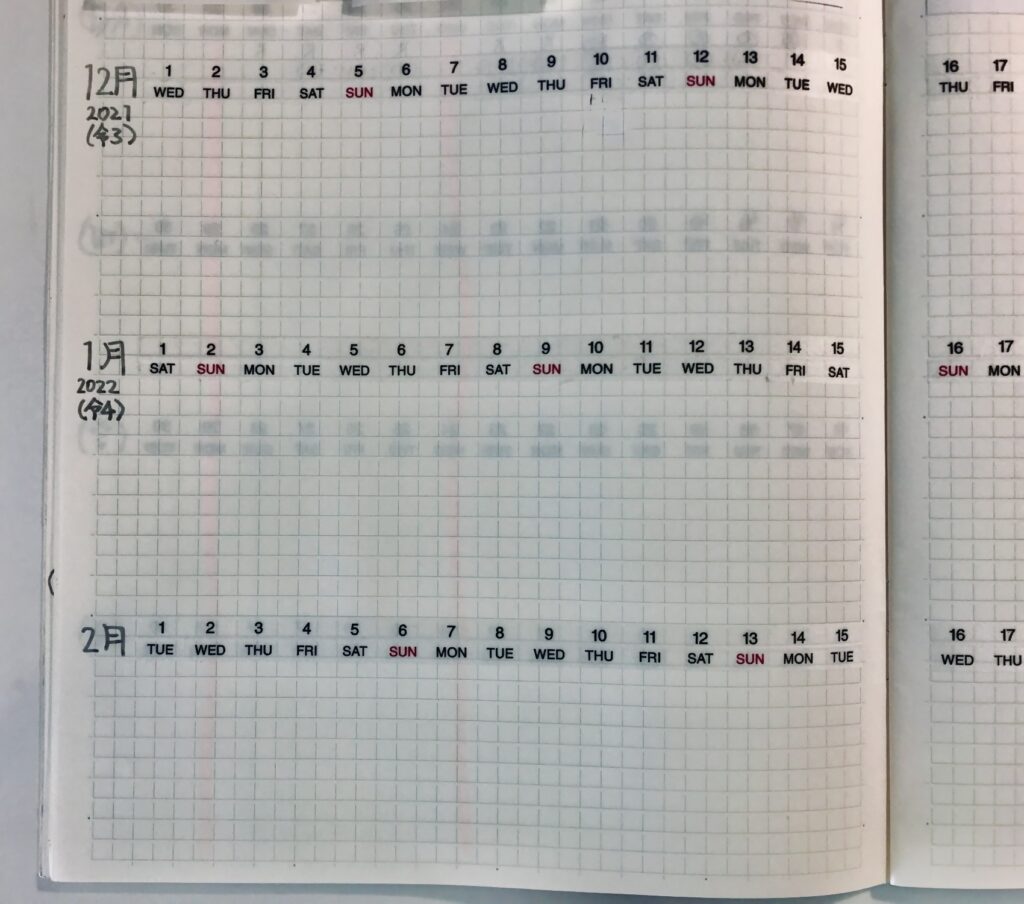 12月 1 2 3 4 5 6 7 8 9 10 11 12 13 14 15 16 17
WED THU FRI SAT SUN MON TUE WED THU FRI SAT SUN MON TUE WED THU FRI
2021
(令3)
1月 1 2 3 4 5 6 7 8 9 10 11 12 13 14 15 16 17
SAT SUN MON TUE WED THU FRI SAT SUN MON TUE WED THU FRI SAT SUN MON
2022
(令4)
2月 1 2 3 4 5 6 7 8 9 10 11 12 13 14 15 16 17
TUE WED THU FRI SAT SUN MON TUE WED THU FRI SAT SUN MON TUE WED THU